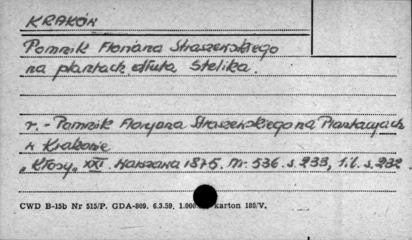 KRAKÓW
Pomnik Floriana Straszewskiego
na plantach dłuta Stelika.
r. - Pomnik Floryana Straszewskiego na Plantacyach
w Krakowie
"Kłosy" XXI. Warszawa 1875. nr. 536. s. 233, il. s. 232.
CWD B-15b Nr 515/P. GDA-809. 6.3.59. karton 180/V.